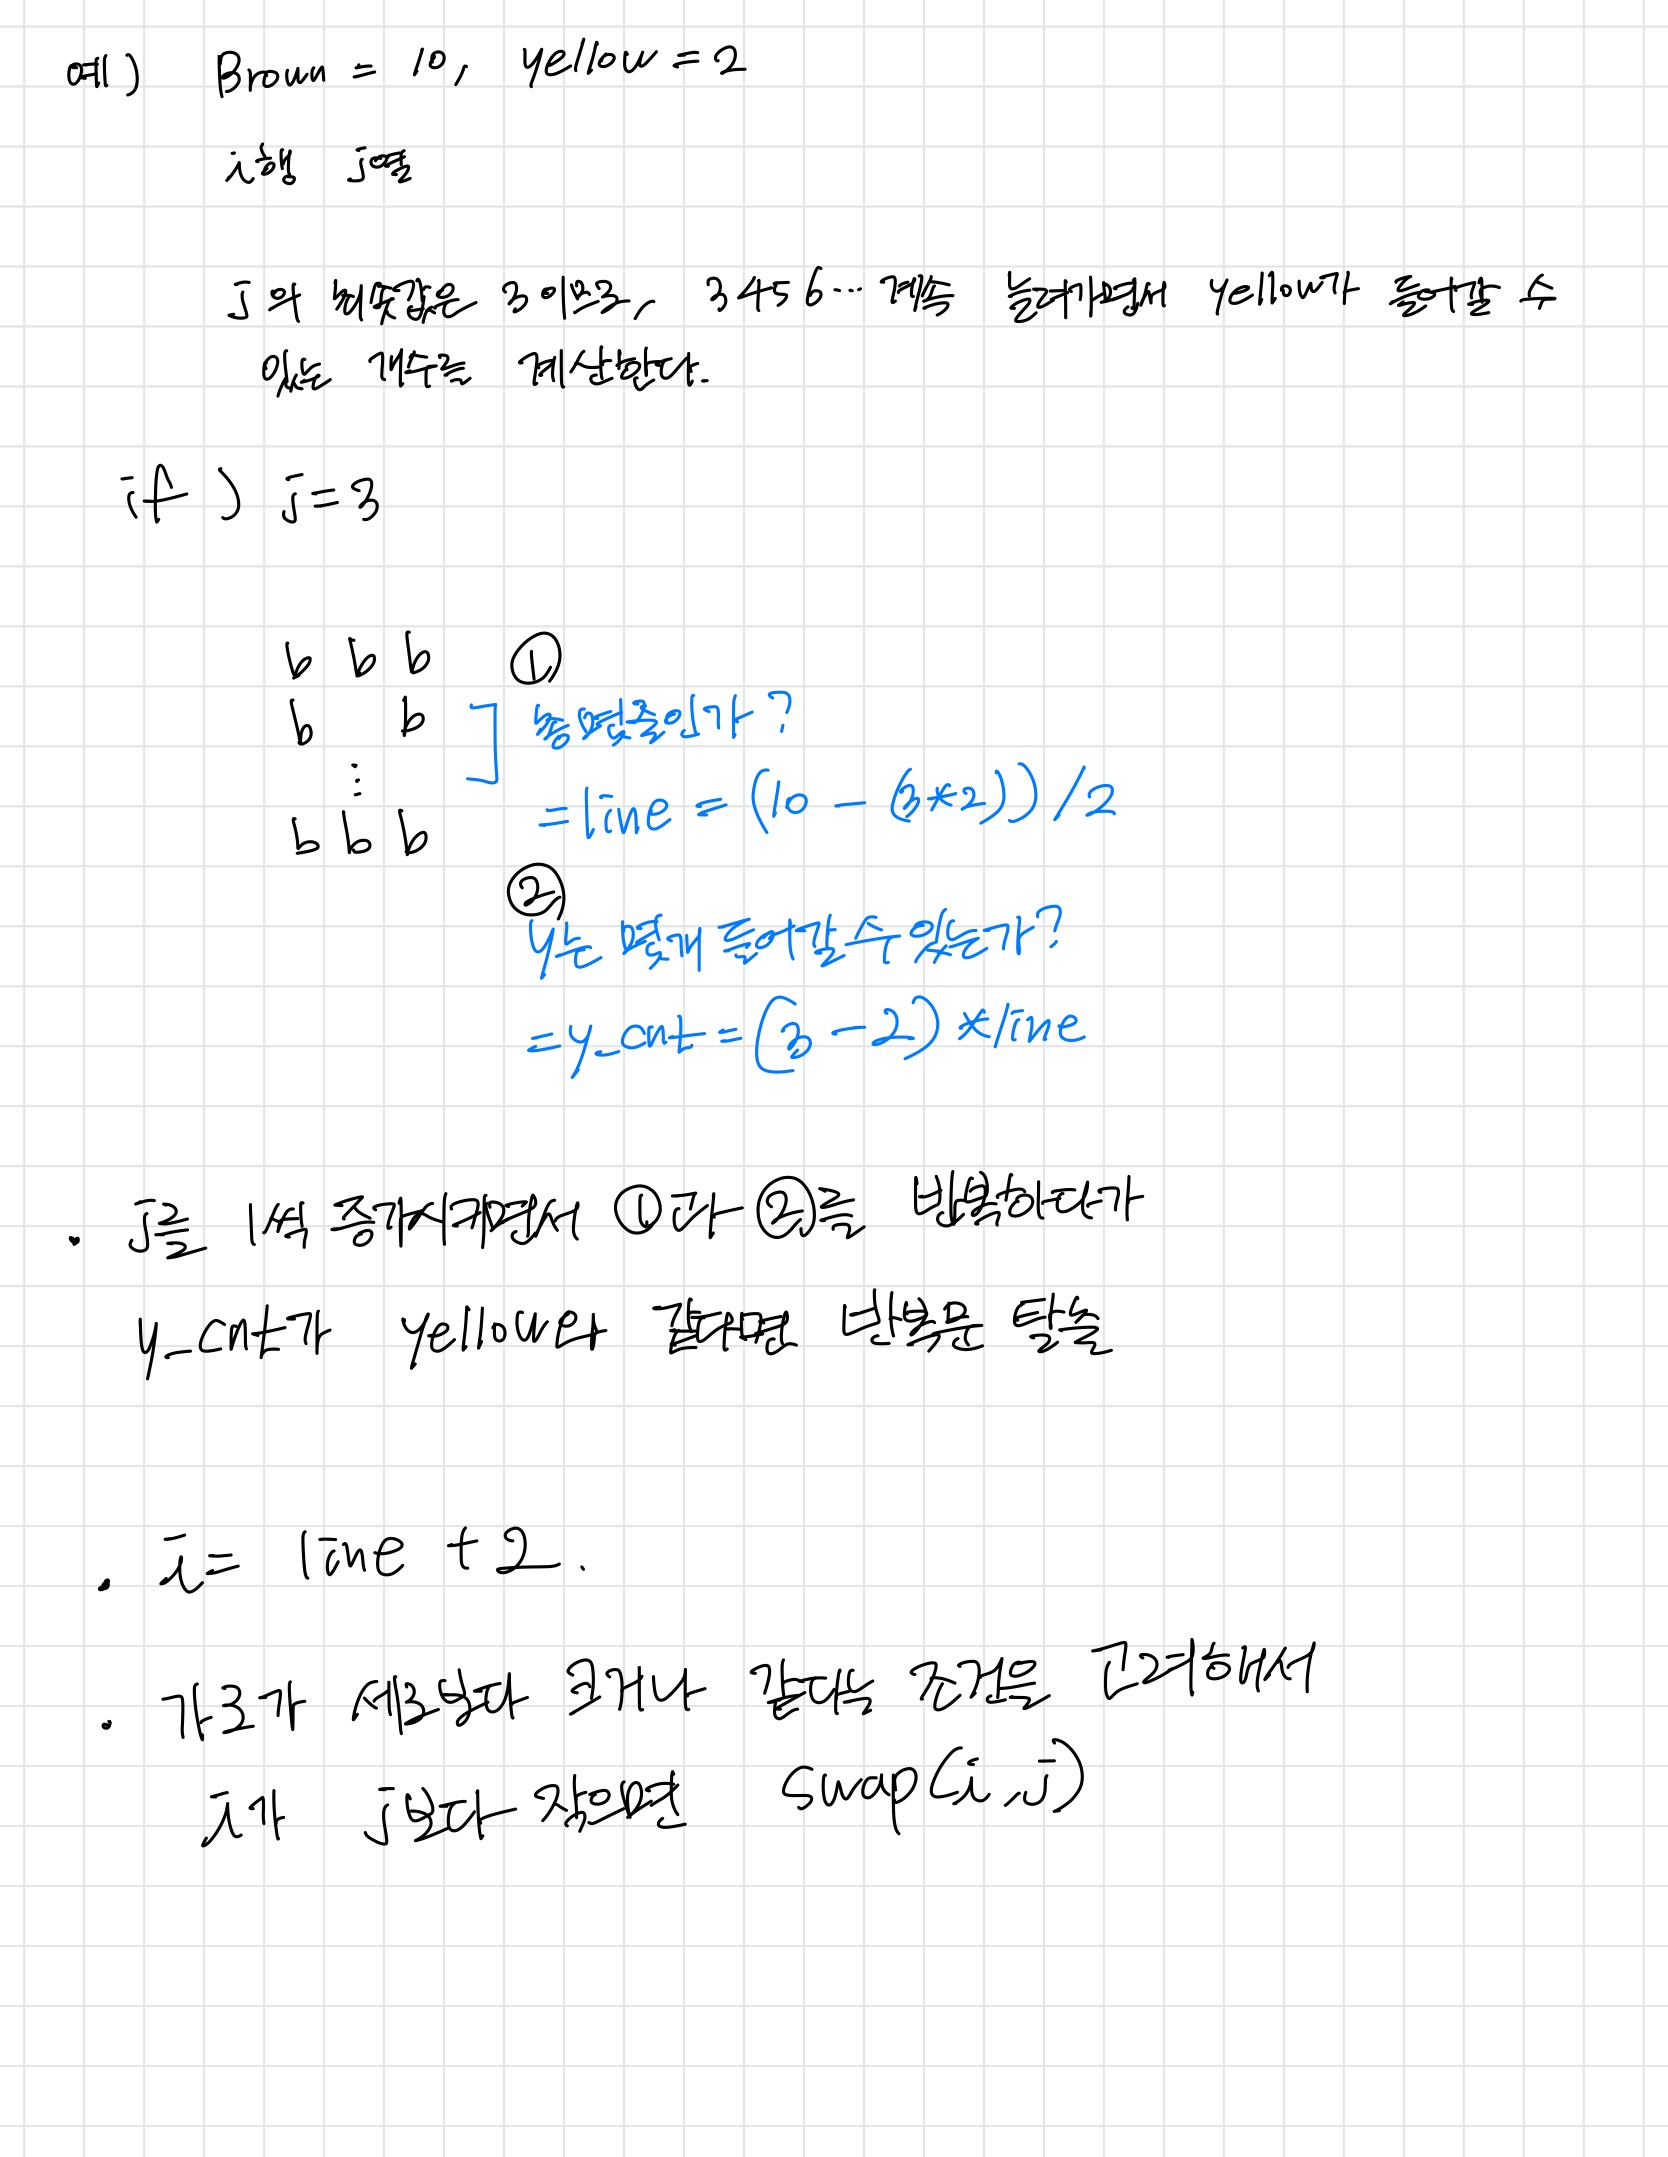 예) Brown = 10, yellow = 2
i행 j열
j의 최솟값은 3이므로, 3 4 5 6 ... 계속 늘려가면서 yellow가 들어갈 수
있는 개수를 계산한다.
if ) j=3
b b b ①
b b ] 총 몇줄인가?
⋮
= line = (10 - (3*2))/2
b b b
②
y는 몇개 들어갈 수 있는가?
= y_cnt = (3-2) * line
· j를 1씩 증가시키면서 ①과 ②를 반복하다가
y_cnt가 yellow와 같다면 반복문 탈출
· i = line + 2.
· 가로가 세로보다 크거나 같다는 조건을 고려해서
i가 j보다 작으면 swap(i,j)